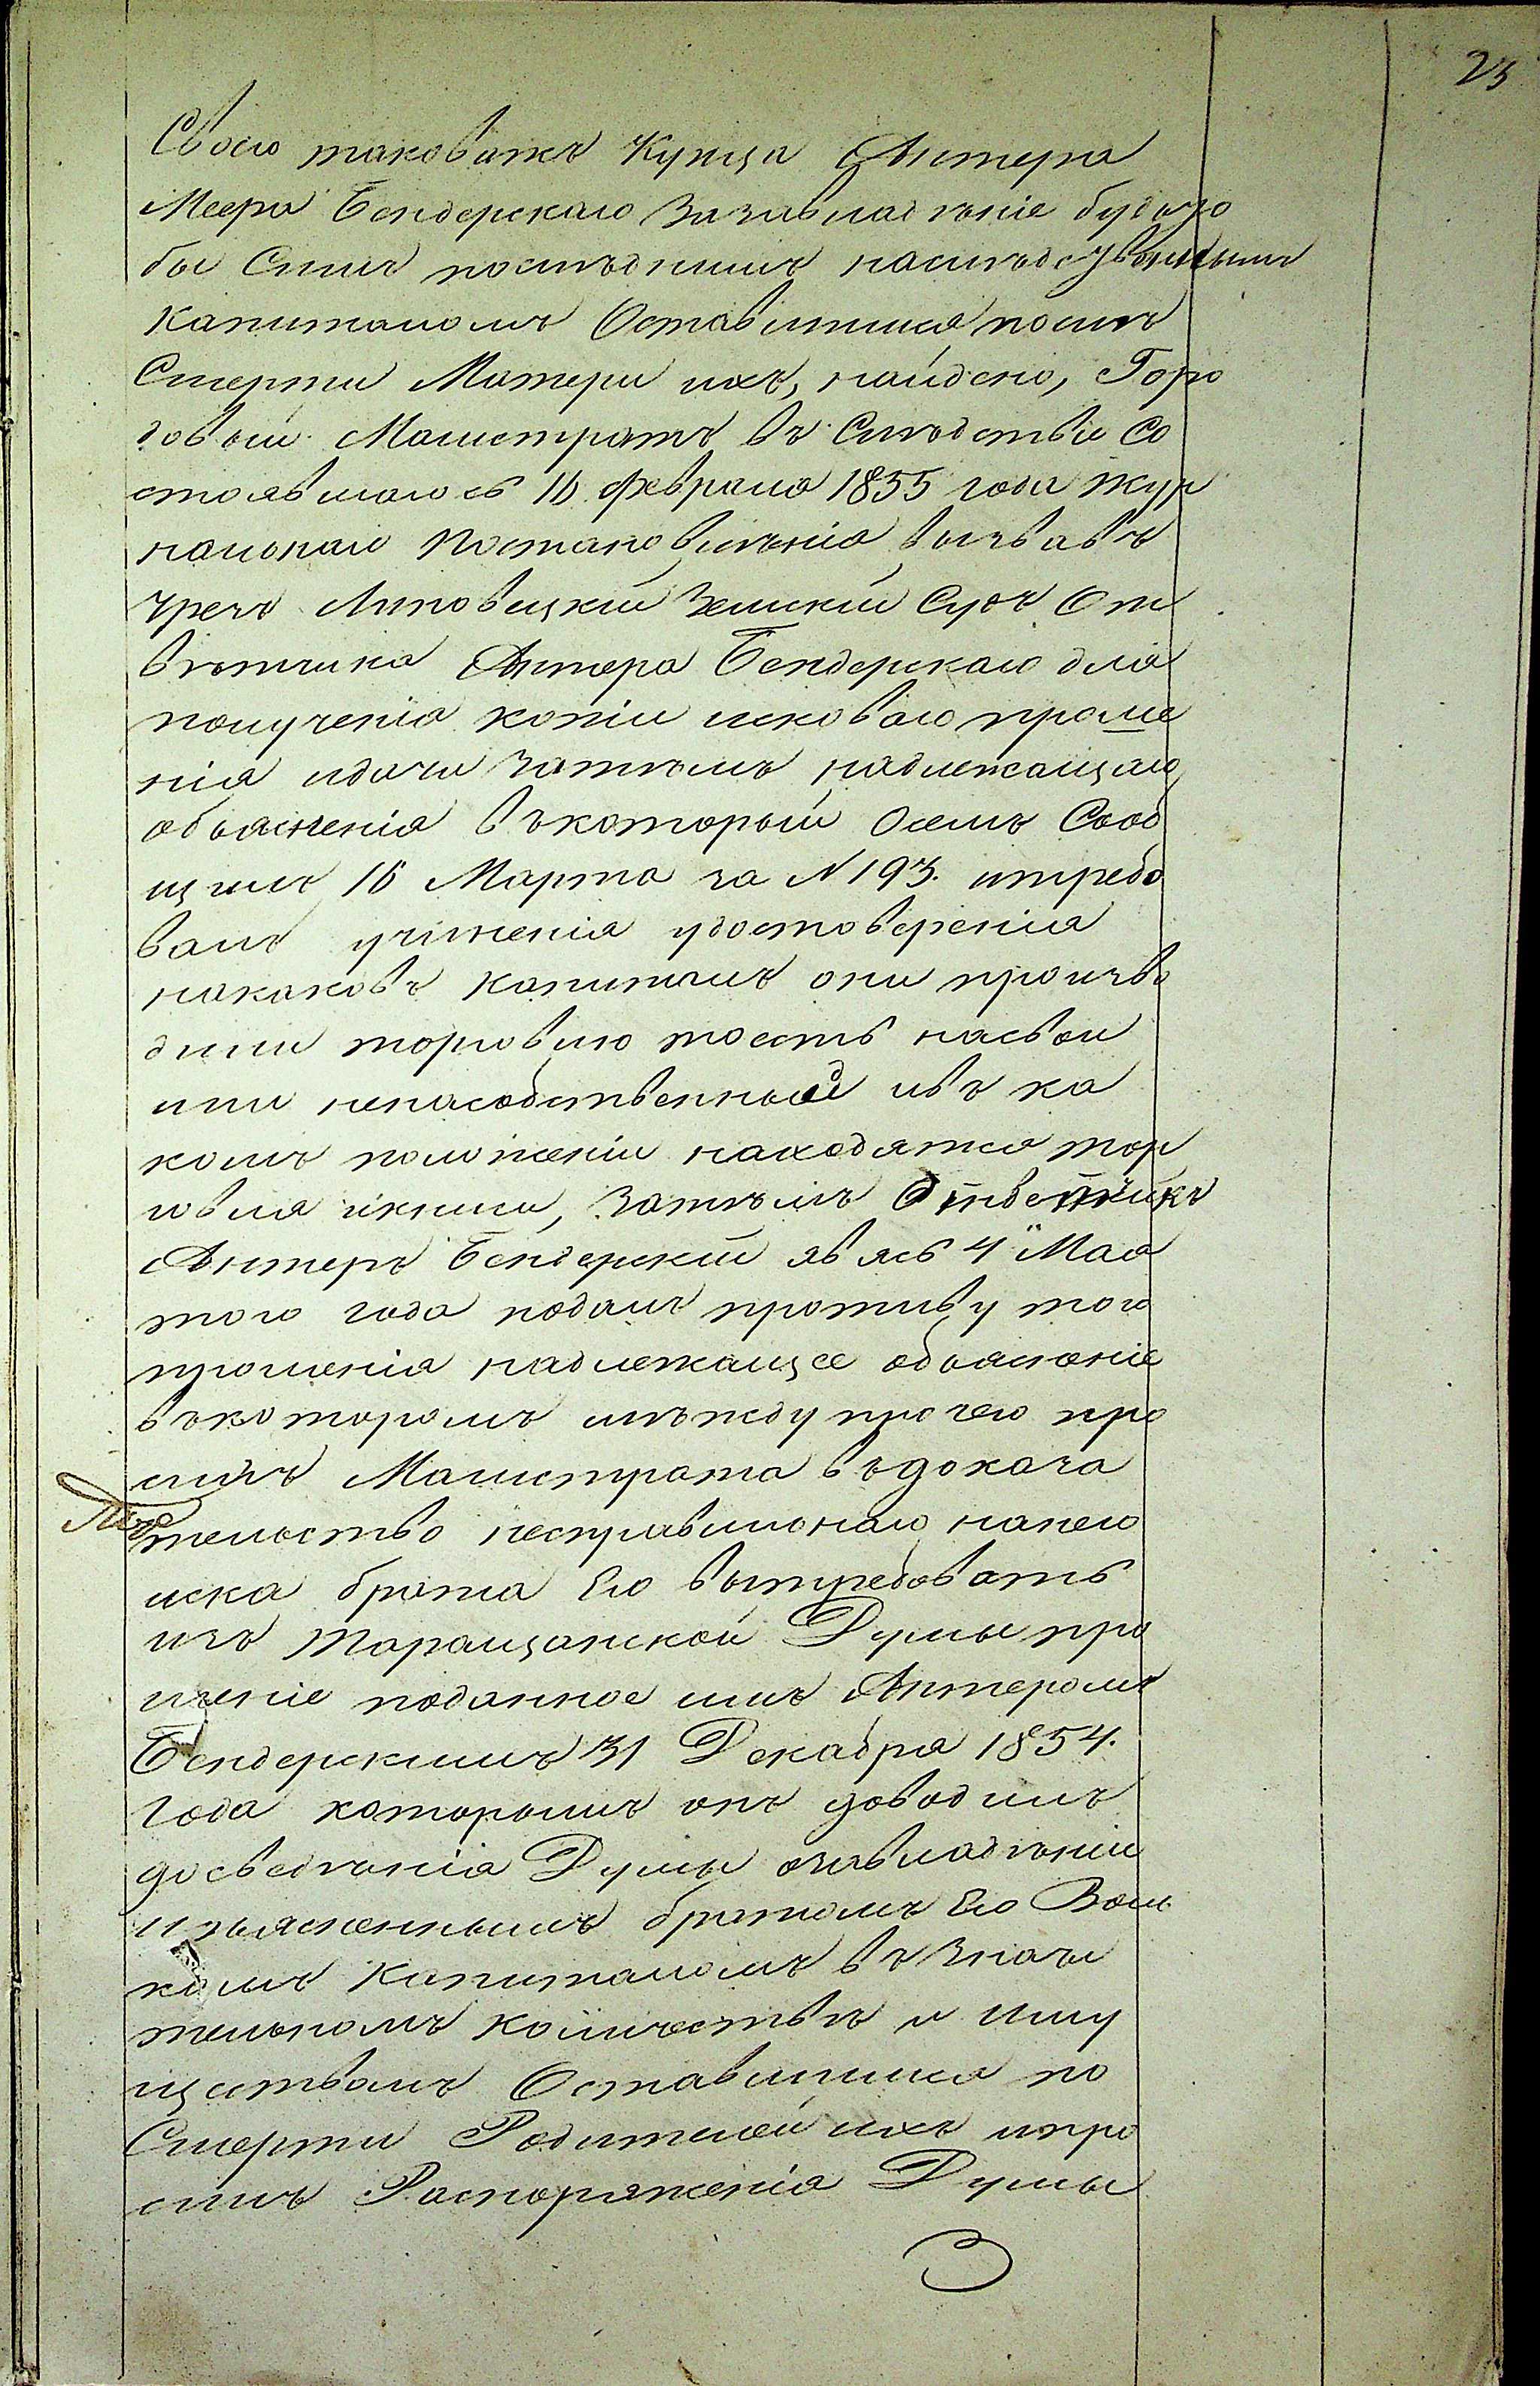 23
Своего таковажъ Купца Антера
Меера Бендерскаго за завладѣніе будьто
бы Симъ послѣднимъ наслѣдственнымъ
капиталомъ Оставшимся послѣ
Смерти Матери ихъ, найдено, Горо
довый Магистратъ въ Слѣдствіе Со
стоявшагось 16 февраля 1855 года Жур
нальнаго постановленія вызвавъ
чрезъ Липовецкій Земскій Судъ От
вѣтчика Антера Бендерскаго для
полученія копіи исковаго проше
нія идачи затѣмъ надлежащаго
объясненія въкоторый Осемъ Сооб
щилъ 16 Марта за N 193. итребо
валъ учиненія удостоверенія
накаковъ капиталъ они произво
дили торговлю тоесть насвои
или ненасобственный ивъ ка
комъ положеніи находятся тор
говля икниги, Затѣмъ Ответчикъ
Антеръ Бендерскій явясь 4 Мая
того года подалъ противу того
прошенія надлежащее объясненіе
въкоторомъ мѣжду прочего про
силъ Магистрата въдоказа
тельство несправильнаго нанего
иска брата Его вытребовать
изъ Таращанской Думы про
шеніе поданное имъ Антеромъ
Бендерскимъ 31 Декабря 1854.
года которымъ онъ доводилъ
досведѣнія Думы озавладѣніи
изъясненнымъ братомъ Его Воль
комъ Капиталомъ въ значи
тельномъ количествѣ и Иму
ществомъ Оставшимся по
Смерти Родителей ихъ ипро
силъ Распоряженія Думы